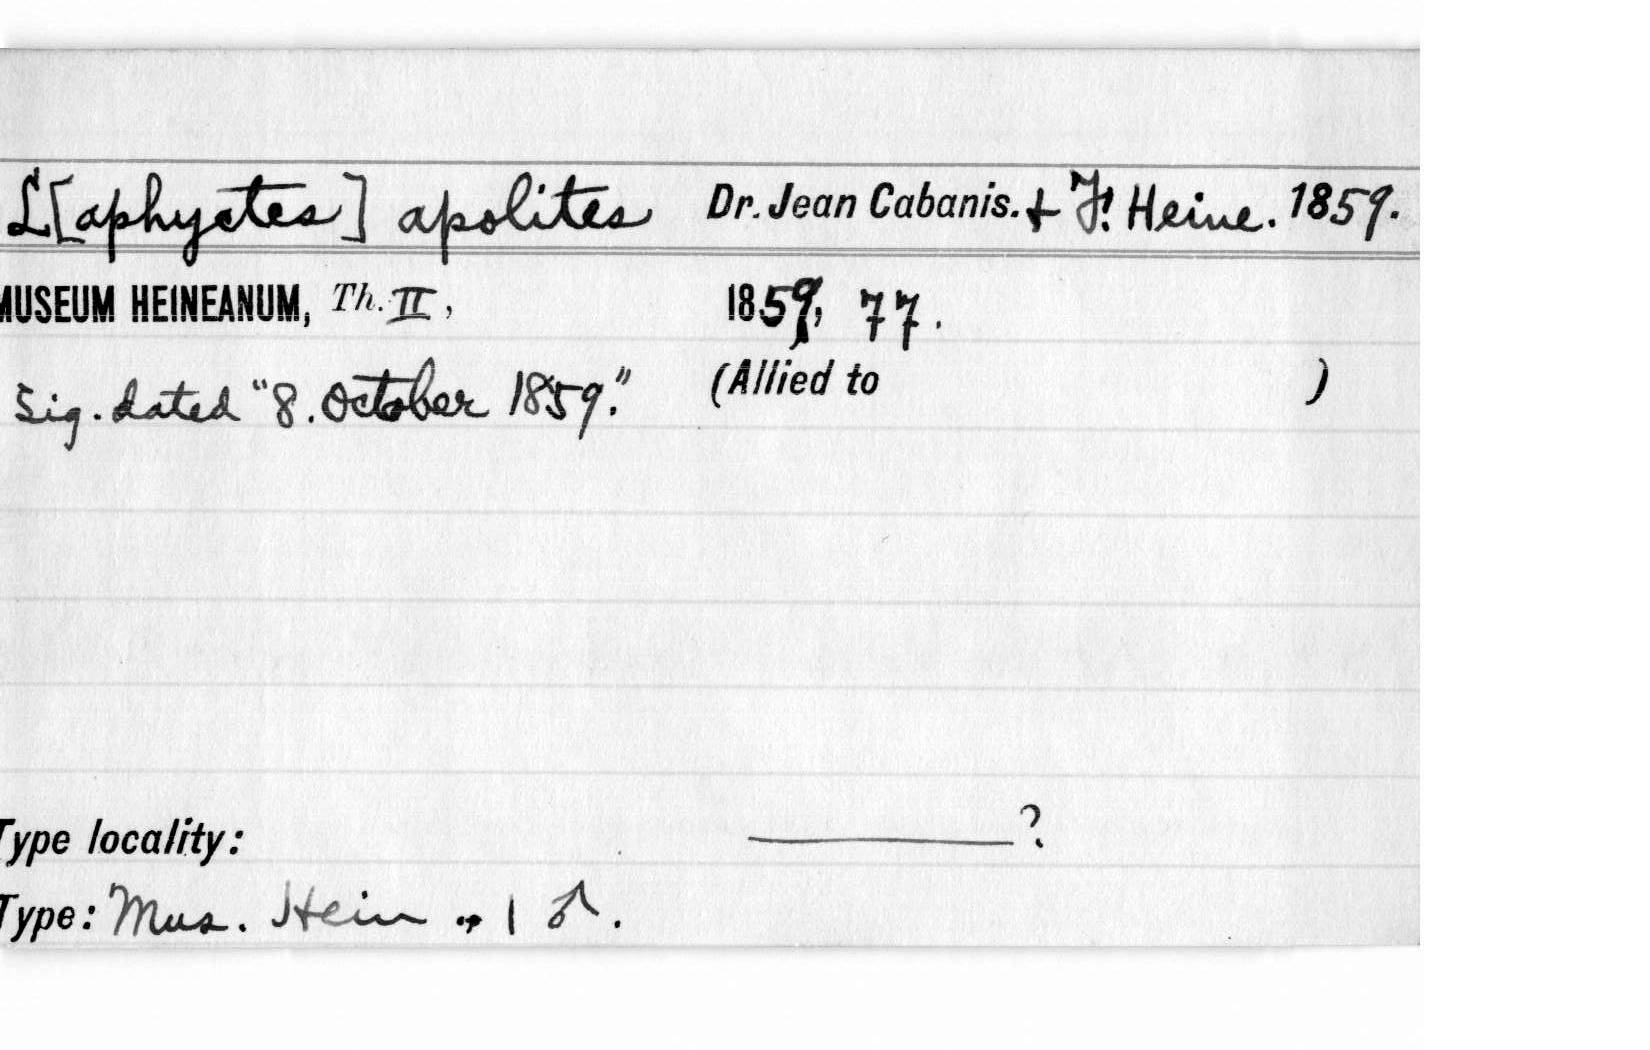 L[aphyctes] apolites Dr. Jean Cabanis. + F. Heine. 1859.
MUSEUM HEINEANUM, Th. II, 1859, 77.
Sig. dated "8. October 1859." (Allied to )
Type locality: ?
Type: Mus. Hein., 1 ♂.